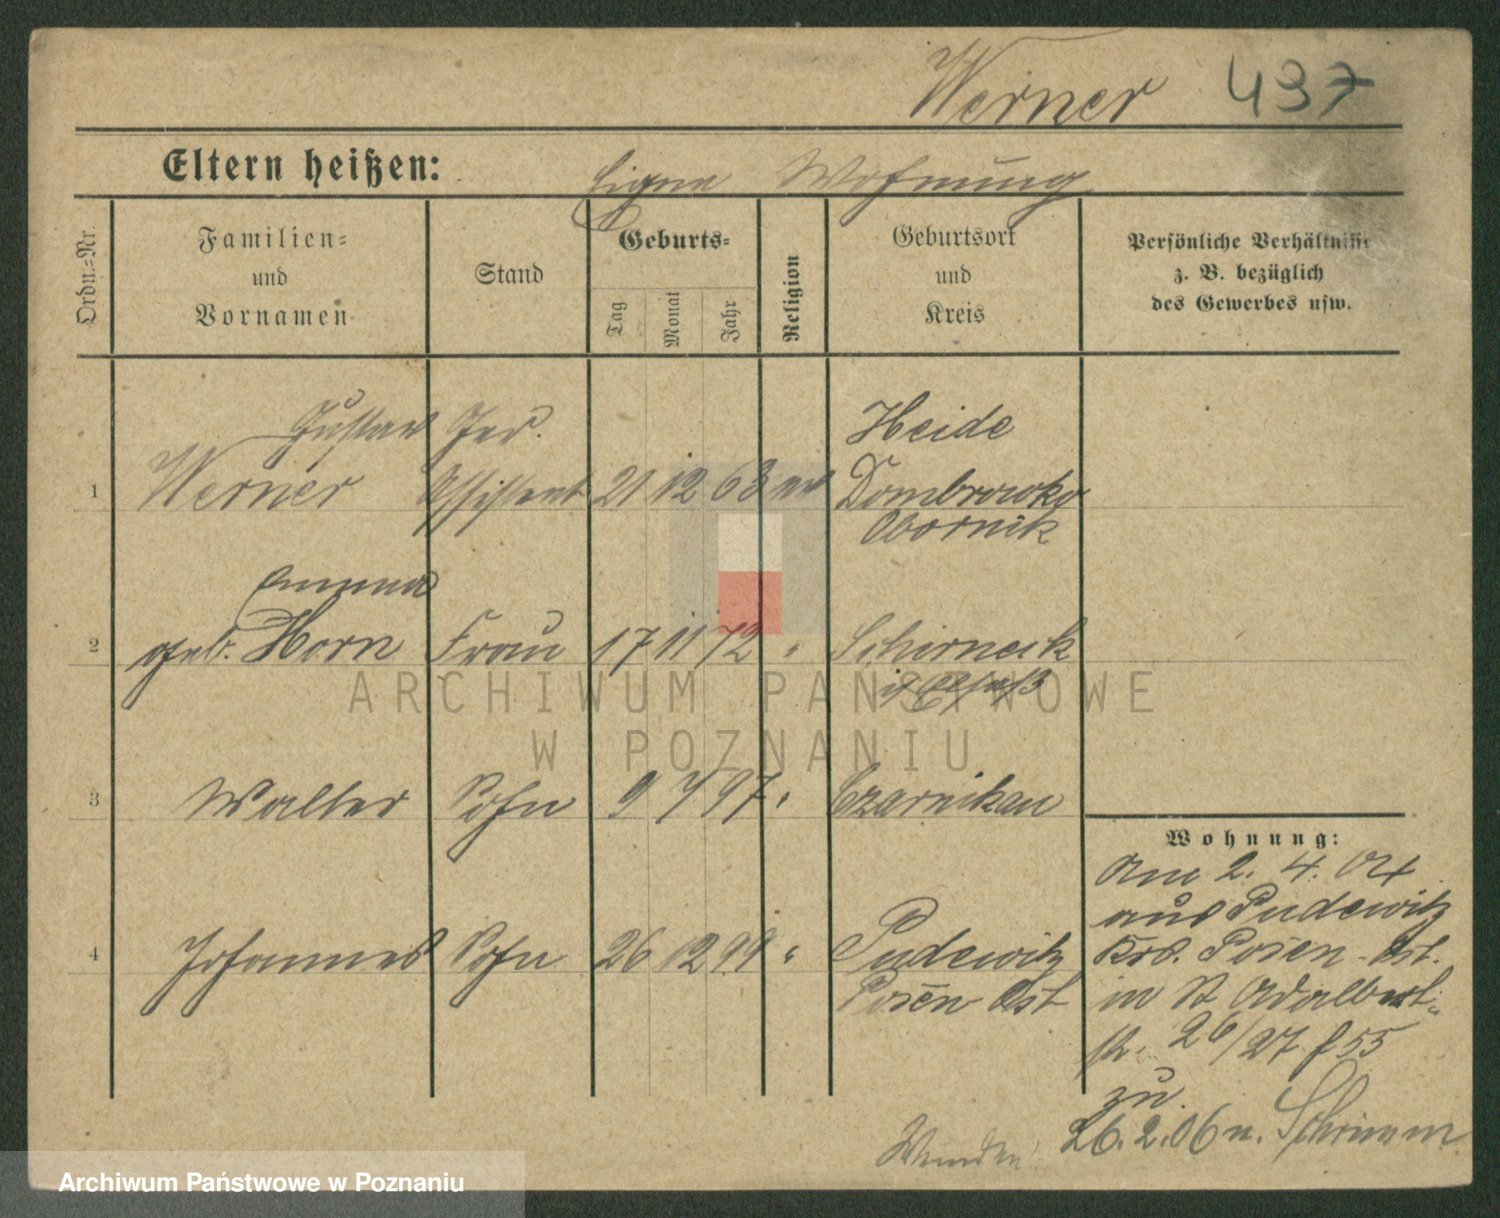 Werner 437
Eltern heißen:
Eigene Wohnung
Ordn.-Nr.
Familien- und Vornamen
Stand
Geburts-
Tag
Monat
Jahr
Religion
Geburtsort und Kreis
Persönliche Verhältnisse
z. B. bezüglich
des Gewerbes usw.
Gustav Ger. Heide
1 Werner Assistent 21 12 63 ev Dombrowka
Obornik
Emma
2 geb. Horn Frau 17 11 72 " Schirneck
i/ Elsaß
3 Walter Sohn 9 7 97 " Czarnikau
Wohnung:
Am 2. 4. 04
aus Pudewitz
4 Johannes Sohn 26 12 99 " Pudewitz
Krs. Posen-Ost.
Posen Ost
in St Adalbert-
str. 26/27 f 55
zu.
26.2.06 n. Schrimm
ARCHIWUM PAŃSTWOWE
W POZNANIU
Archiwum Państwowe w Poznaniu